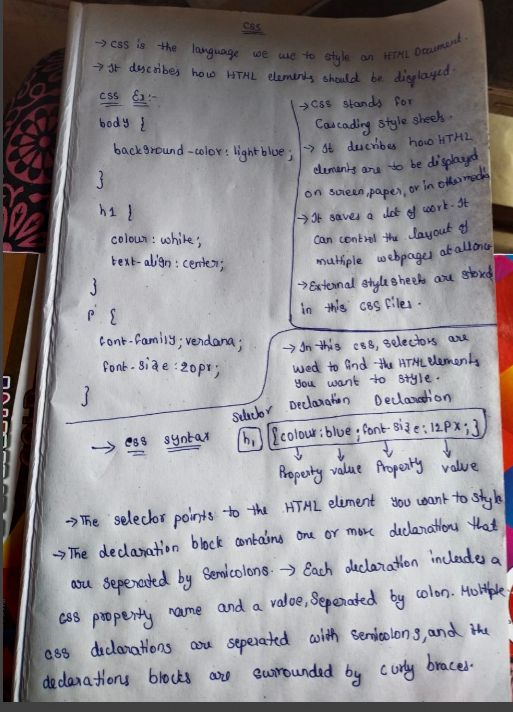 CSS
→ CSS is the language we use to style an HTML Document.
→ It describes how HTML elements should be displayed.
CSS Ex:-
body {
background-color: lightblue;
}
h1 {
colour: white;
text-align: center;
}
P {
font-family; verdana;
font-size: 20px;
}
→ CSS stands for
Cascading style sheets.
→ It describes how HTML
elements are to be displayed
on screen, paper, or in other media
→ It saves a lot of work. It
can control the layout of
multiple webpages at all once
→ External stylesheets are stored
in this CSS files.
→ In this css, selectors are
used to find the HTML elements
you want to style.
→ css syntax
Selector Declaration Declaration
h1 {colour: blue; font-size: 12px;}
Property value Property value
→ The selector points to the HTML element you want to style
→ The declaration block contains one or more declarations that
are seperated by semicolons. → Each declaration includes a
css property name and a value, Seperated by colon. Multiple
css declarations are seperated with semicolons, and the
declarations blocks are surrounded by curly braces.